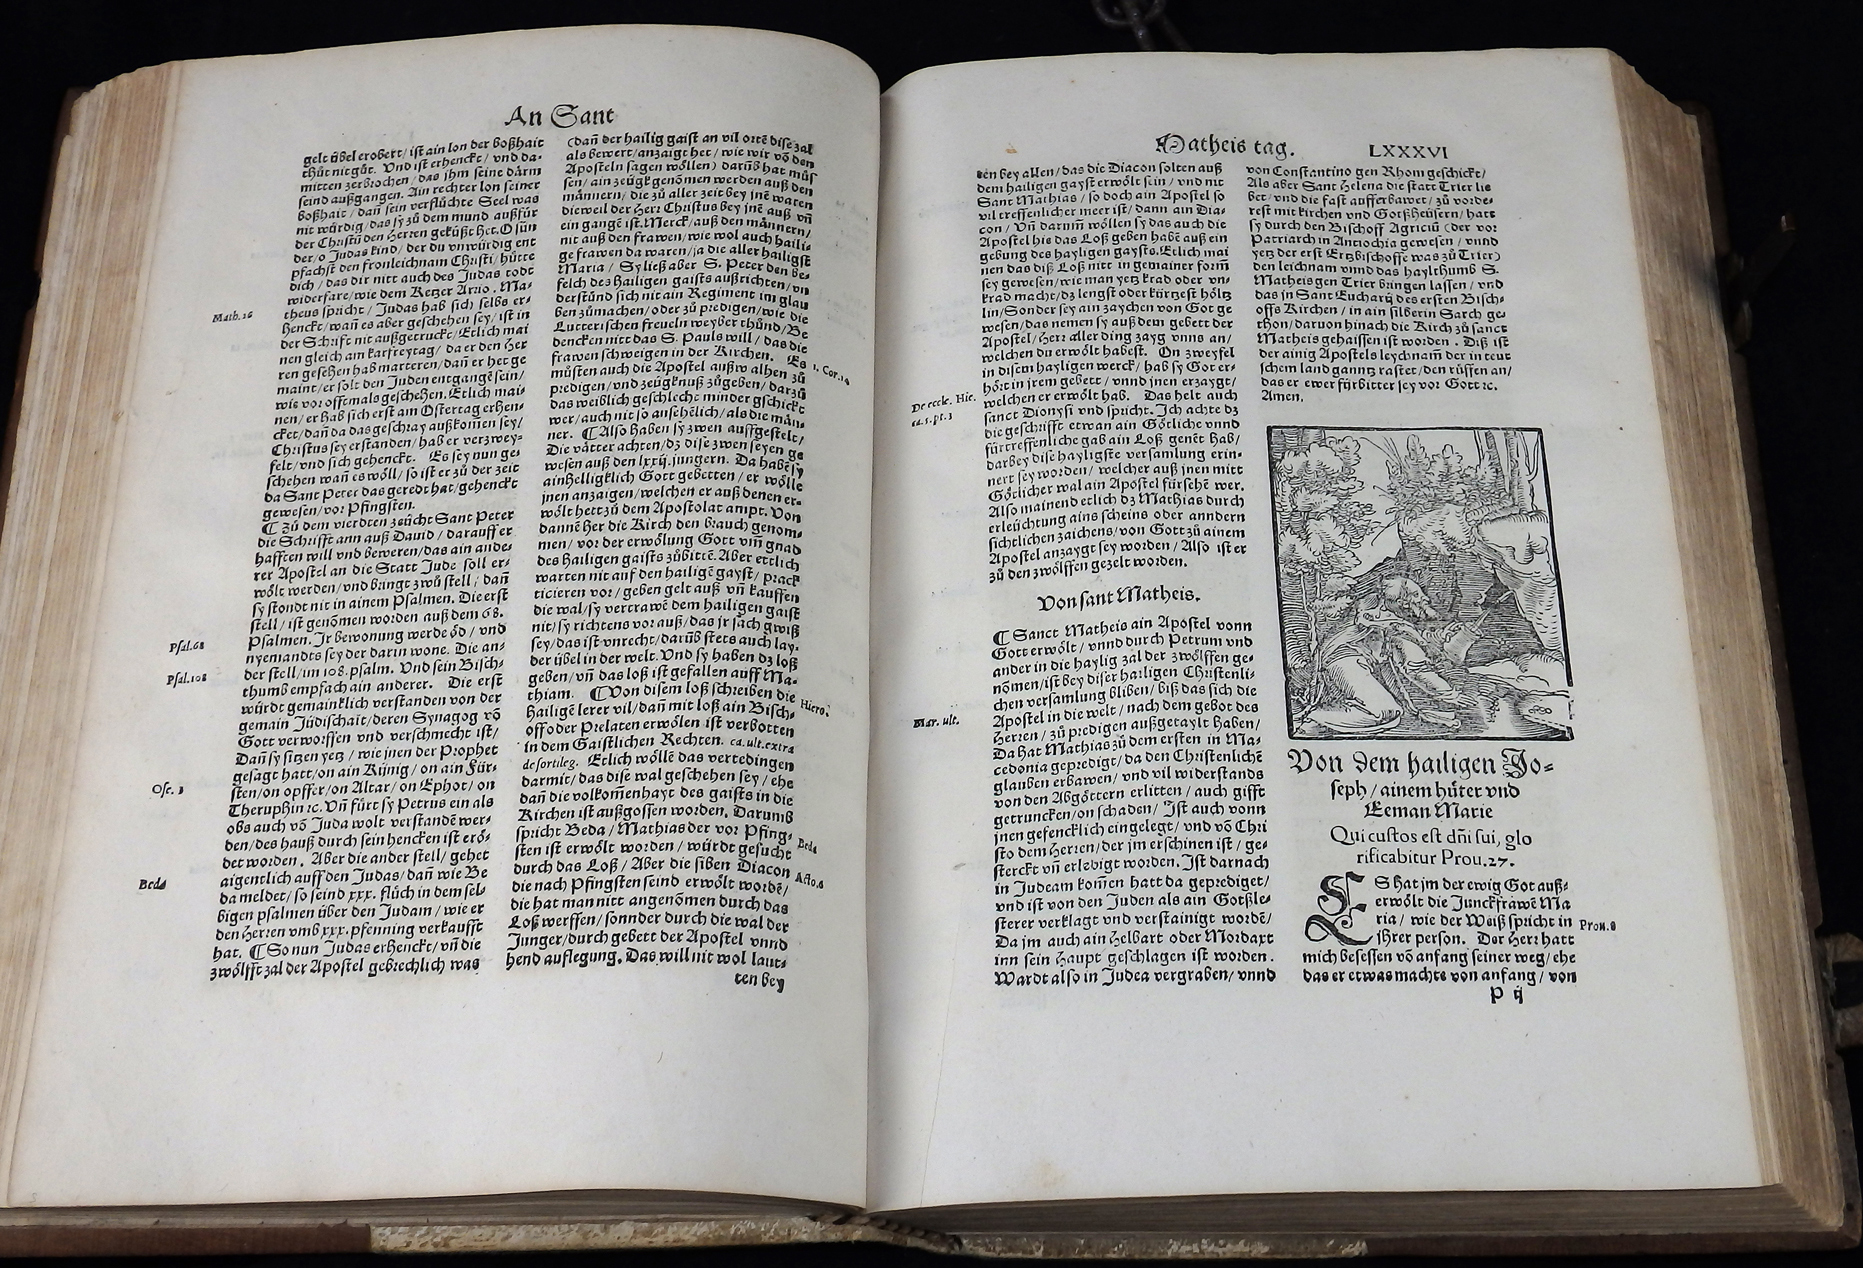 An Sant
gelt übel erobert / ist ain lon der boßhait
thůt nit gůt. Vnd ist erhenckt / vnd da-
mitten zerbrochen / das jhm seine därm
seind außgangen. Ain rechter lon seiner
boßhait / dañ sein verflůchte Seel was
nit würdig / das sy zů dem mund außfůr
der Christũ den Herren geküßt het. O sün
der / o Judas kind / der du vnwürdig ent
pfachst den fronleichnam Christi / hütte
dich / das dir nitt auch des Judas todt
widerfare / wie dem Ketzer Arrio. Ma-
theus spricht / Judas hab sich selbs er-
Math. 26
hencke / wañ es aber geschehen sey / ist in
der Schrift nit außgetruckt / Etlich mai
nen gleich am karfreytag / da er den Her
ren gesehen hab marteren / dañ er het ge
maint / er solt den Juden entgangẽ sein /
wis vor offtmals geschehen. Etlich mai-
nen / er hab sich erst am Ostertag erhen-
cket / dañ da das geschray außkomen sey /
Christus sey erstanden / hab er verzwey-
felt / vnd sich gehenckt. Es sey nun ge-
schehen wañ es wöll / so ist er zů der zeit
da Sant Peter das geredt hat / gehenckt
gewesen / vor Pfingsten.
¶ Zů dem vierdten zeücht Sant Peter
die Schrifft ann auß Dauid / darauff er
hafften will vnd beweren / das ain ande-
rer Apostel an die Statt Jude soll er-
wölt werden / vnd bringt zwů stell / dañ
sy stondt nit in ainem Psalmen. Die erst
stell / ist genõmen worden auß dem 68.
Psal. 68
Psalmen. Jr bewonung werde öd / vnd
nyemandts sey der darin wone. Die an-
der stell / im 108. psalm. Vnd sein Bisch-
Psal. 108
thumb empfach ain anderer. Die erst
würdt gemainklich verstanden von der
gemain Jüdischait / deren Synagog võ
Gott verworffen vnd verschmecht ist /
Dañ sy sitzen yetz / wie jnen der Prophet
gesagt hatt / on ain Künig / on ain Für-
Ose. 3
sten / on opffer / on Altar / on Ephot / on
Theruphin ⁊c. Vñ fürt sy Petrus ein als
obs auch võ Juda wolt verstandẽ wer-
den / des hauß durch sein hencken ist erö-
det worden. Aber die ander stell / gehet
aigentlich auff den Judas / dañ wie Be
Beda
da meldet / so seind xxx. flüch in dem sel-
bigen psalmen über den Judam / wie er
den Herren vmb xxx. pfenning verkaufft
hat. ¶ So nun Judas erhenckt / vñ die
zwölfft zal der Apostel gebrechlich was
(dañ der hailig gaist an vil ortẽ dise zal
als bewert / anzaigt het / wie wir võ den
Aposteln sagen wöllen) darũb hat müs
sen / ain zeügk genõmen werden auß den
männern / die zů aller zeit bey jnẽ waren
dieweil der Herr Christus bey jnẽ auß vñ
ein gangẽ ist. Merck / auß den männern /
nit auß den frawen / wie wol auch haili-
ge frawen da waren / ja die aller hailigst
Maria / Sy ließ aber S. Peter den be-
felch des Hailigen gaists außrichten / vñ
derstůnd sich nit ain Regiment im glau
ben zůmachen / oder zů predigen / wie die
Lutterischen freueln weyber thůnd / Be
dencken nitt das S. Pauls will / das die
frawen schweigen in der Kirchen. Es
1. Cor. 14
můsten auch die Apostel außwalhen zů
predigen / vnd zeügknuß zůgeben / darzů
das weiblich geschlecht minder gschickt
wer / auch nit so ansehẽlich / als die män-
ner. ¶ Also haben sy zwen auffgestelt /
Die vätter achten / dz dise zwen seyen ge
wesen auß den lxxij. jungern. Da habẽ sy
ainhelligklich Gott gebetten / er wölle
jnen anzaigen / welchen er auß denen er-
wölt hett zů dem Apostolat ampt. Von
dannẽ her die Kirch den brauch genom-
men / vor der erwölung Gott vm̃ gnad
des hailigen gaists zůbittẽ. Aber ettlich
warten nit auf den hailigẽ gayst / prack
ticieren vor / geben gelt auß vñ kauffen
die wal / sy vertrawẽ dem hailigen gaist
nit / sy richtens vor auß / das jr sach gwiß
sey / das ist vnrecht / darũb stets auch lay-
der übel in der welt. Vnd sy haben dz loß
geben / vñ das loß ist gefallen auff Ma-
thiam. ¶ Von disem loß schreiben die
Hiero.
hailigẽ lerer vil / dañ mit loß ain Bisch-
off oder Prelaten erwölen ist verbotten
in dem Gaistlichen Rechten. ca. ult. extra
de sortileg. Etlich wöllẽ das vertedingen
darmit / das dise wal geschehen sey / ehe
dañ die volkom̃enhayt des gaists in die
Kirchen ist außgossen worden. Darumb
spricht Beda / Mathias der vor Pfing-
Beda
sten ist erwölt worden / würdt gesucht
durch das Loß / Aber die siben Diacon
Acto. 6
die nach Pfingsten seind erwölt wordẽ /
die hat man nitt angenõmen durch das
Loß werffen / sonnder durch die wal der
Junger / durch gebett der Apostel vnnd
hend auflegung. Das will nit wol laut-
ten bey
Matheis tag. LXXXVI
ten bey allen / das die Diacon solten auß
dem hailigen gayst erwölt sein / vnd nit
Sant Mathias / so doch ain Apostel so
vil treffenlicher meer ist / dann ain Dia-
con / Vñ darum̃ wöllen sy das auch die
Apostel his das Loß geben habẽ auß ein
gebung des hayligen gaysts. Etlich mai
nen das diß Loß nitt in gemainer form̃
sey gewesen / wie man yetz krad oder vn-
krad macht / dz lengst oder kürtzest höltz
lin / Sonder sey ain zaychen von Got ge
wesen / das nemen sy auß dem gebett der
Apostel / Herr aller ding zayg vnns an /
welchen du erwölt habest. On zweyfel
in disem hayligen werck / hab sy Got er-
hört in jrem gebett / vnnd jnen erzaygt /
welchen er erwölt hab. Das helt auch
De eccle. Hie.
ca. 5. pt. 3
sanct Dionysi vnd spricht. Ich achte dz
die geschrifft etwan ain Götliche vnnd
fürtreffenliche gab ain Loß genẽt hab /
darbey dise hayligste versamlung erin-
nert sey worden / welcher auß jnen mitt
Götlicher wal ain Apostel fürsehẽ wer.
Also mainend etlich dz Mathias durch
erleüchtung ains scheins oder anndern
sichtlichen zaichens / von Gott zů ainem
Apostel anzaygt sey worden / Also ist er
zů den zwölffen gezelt worden.
Von sant Matheis.
¶ Sanct Matheis ain Apostel vonn
Gott erwölt / vnnd durch Petrum vnd
ander in die haylig zal der zwölffen ge-
nõmen / ist bey diser hailigen Christenli-
chen versamlung bliben / biß das sich die
Mar. ult.
Apostel in die welt / nach dem gebot des
Herren / zů predigen außgetaylt haben /
Da hat Mathias zů dem ersten in Ma-
cedonia gepredigt / da den Christenlichẽ
glauben erbawen / vnd vil widerstands
von den Abgöttern erlitten / auch gifft
getruncken / on schaden / Ist auch vonn
jnen gefencklich eingelegt / vnd võ Chri
sto dem Herren / der jm erschinen ist / ge-
sterckt vñ erledigt worden. Ist darnach
in Judeam kom̃en hatt da geprediget /
vnd ist von den Juden als ain Gotßle-
sterer verklagt vnd verstainigt wordẽ /
Da jm auch ain Helbart oder Mordaxt
inn sein haupt geschlagen ist worden.
Wardt also in Judea vergraben / vnnd
von Constantino gen Rhom geschickt /
Als aber Sant Helena die statt Trier lie
bet / vnd die fast aufferbawet / zů vorde-
rest mit kirchen vnd Gotßheüsern / hatt
sy durch den Bischoff Agriciũ (der vor
Patriarch in Antiochia gewesen / vnnd
yetz der erst Ertzbischoffe was zů Trier)
den leichnam vnnd das haylthumb S.
Matheis gen Trier bringen lassen / vnd
das in Sant Eucharij des ersten Bisch-
offs Kirchen / in ain silberin Sarch ge-
thon / daruon hinach die Kirch zů sanct
Matheis gehaissen ist worden. Diß ist
der ainig Apostels leychnam̃ der in teut
schem land ganntz rastet / den rüffen an /
das er ewer fürbitter sey vor Gott ⁊c.
Amen.
Von dem hailigen Jo-
seph / ainem hüter vnd
Eeman Marie
Qui custos est dñi sui, glo
rificabitur Prou. 27.
ES hat jm der ewig Got auß-
erwölt die Junckfrawẽ Ma
ria / wie der Weiß spricht in
Prou. 8
jhrer person. Der Herr hatt
mich besessen võ anfang seiner weg / ehe
das er etwas machte von anfang / von
P ij